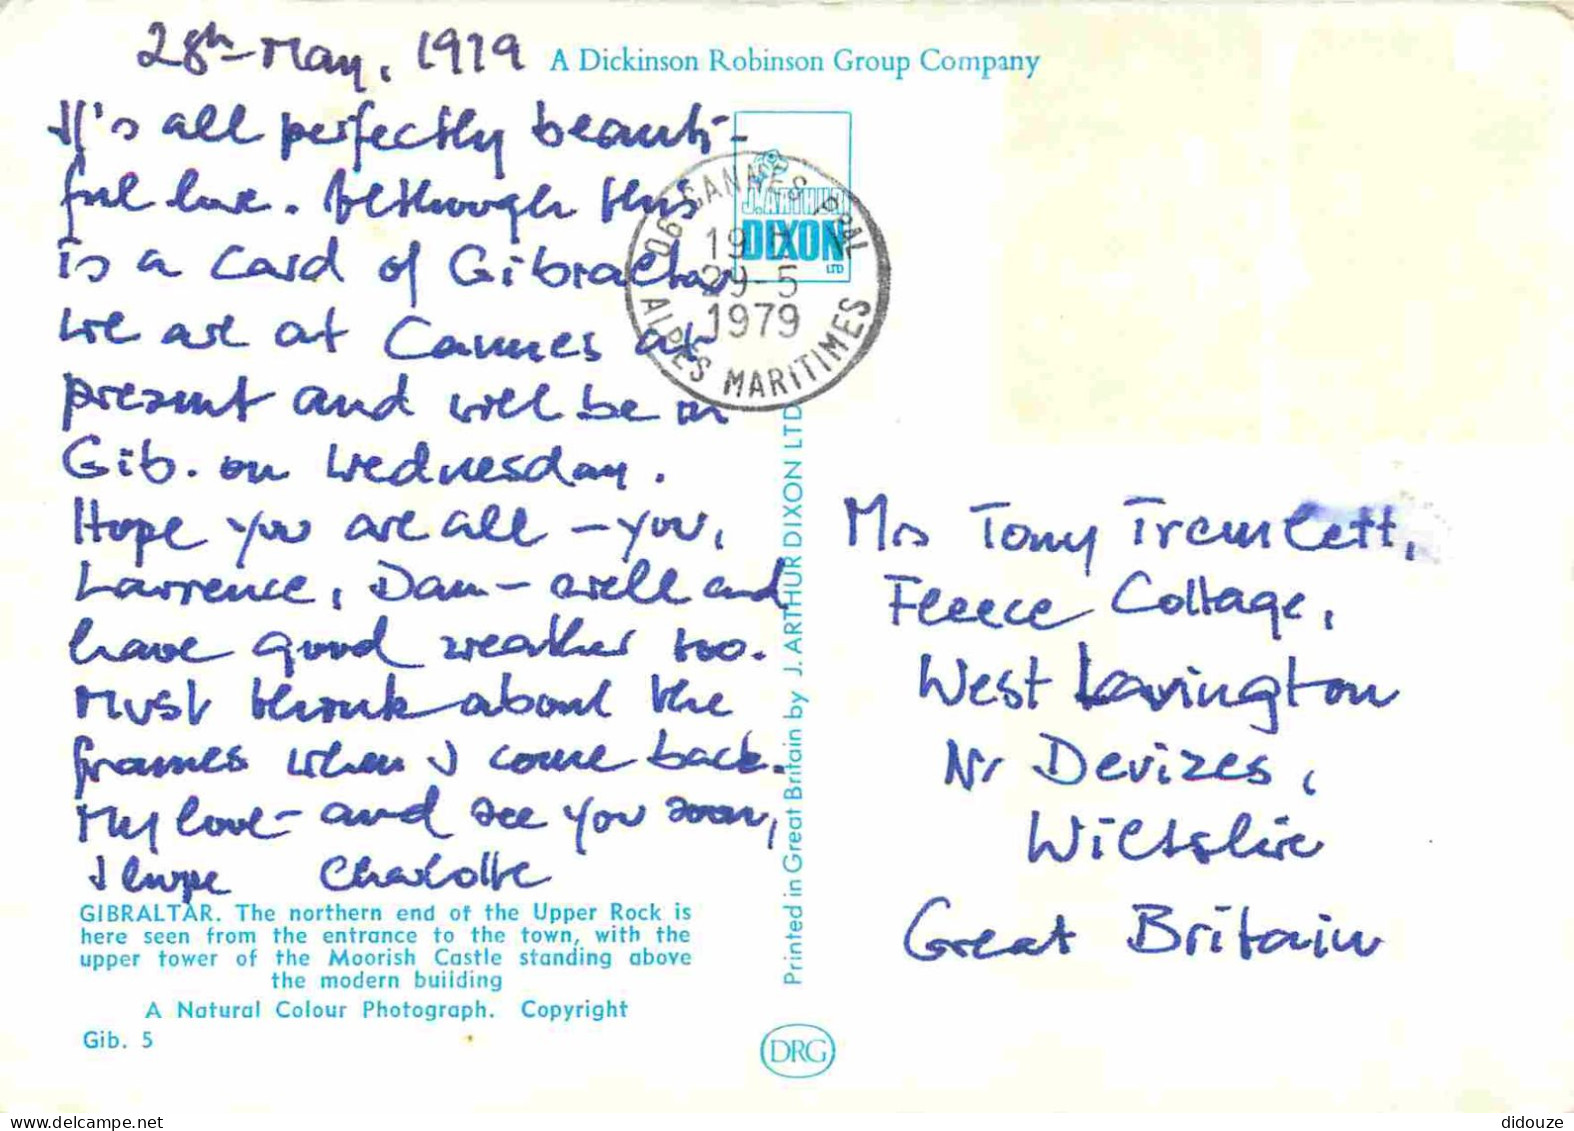 28th May, 1979
A Dickinson Robinson Group Company
It's all perfectly beauti-
ful here. Although this
is a card of Gibraltar
we are at Cannes at
present and will be in
Gib. on Wednesday.
Hope you are all – you,
Lawrence, Dan – well and
have good weather too.
Must think about the
frames when I come back.
My love – and see you soon,
I hope Charlotte
GIBRALTAR. The northern end of the Upper Rock is
here seen from the entrance to the town, with the
upper tower of the Moorish Castle standing above
the modern building
A Natural Colour Photograph. Copyright
Gib. 5
J. ARTHUR
DIXON
LTD
06 CANNES PPAL
19
29-5
1979
ALPES MARITIMES
Printed in Great Britain by J. ARTHUR DIXON LTD
DRG
Mrs Tony Tremlett,
Fleece Cottage,
West Lavington
Nr Devizes,
Wiltshire
Great Britain
didouze